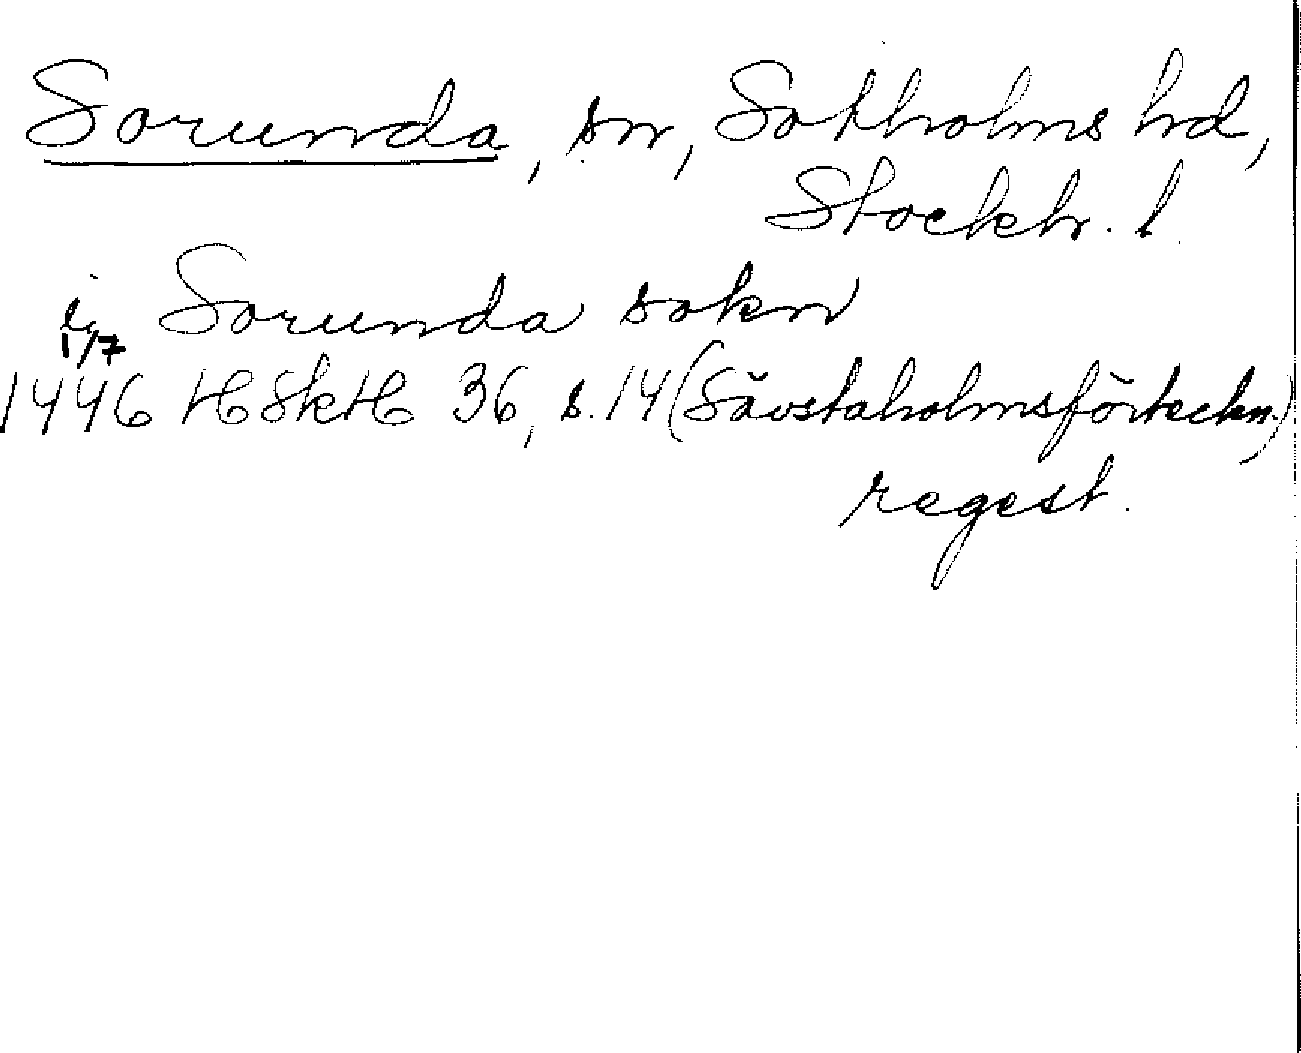 Sorunda, sn, Sotholms hd,
Stockh. l.
i Sorunda sokn
1/7
1446 HSkH 36, s. 14 (Sävstaholmsförteckn.)
regest.